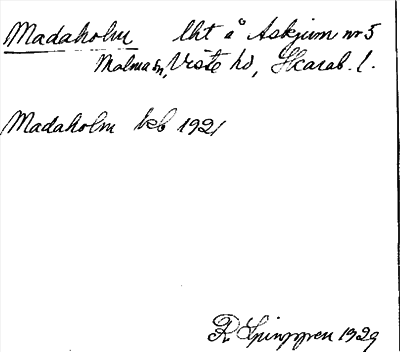 Madaholm lht å Askjum nr 5
Malma sn, Viste hd, Skarab. l.
Madaholm kb 1921
R 1929